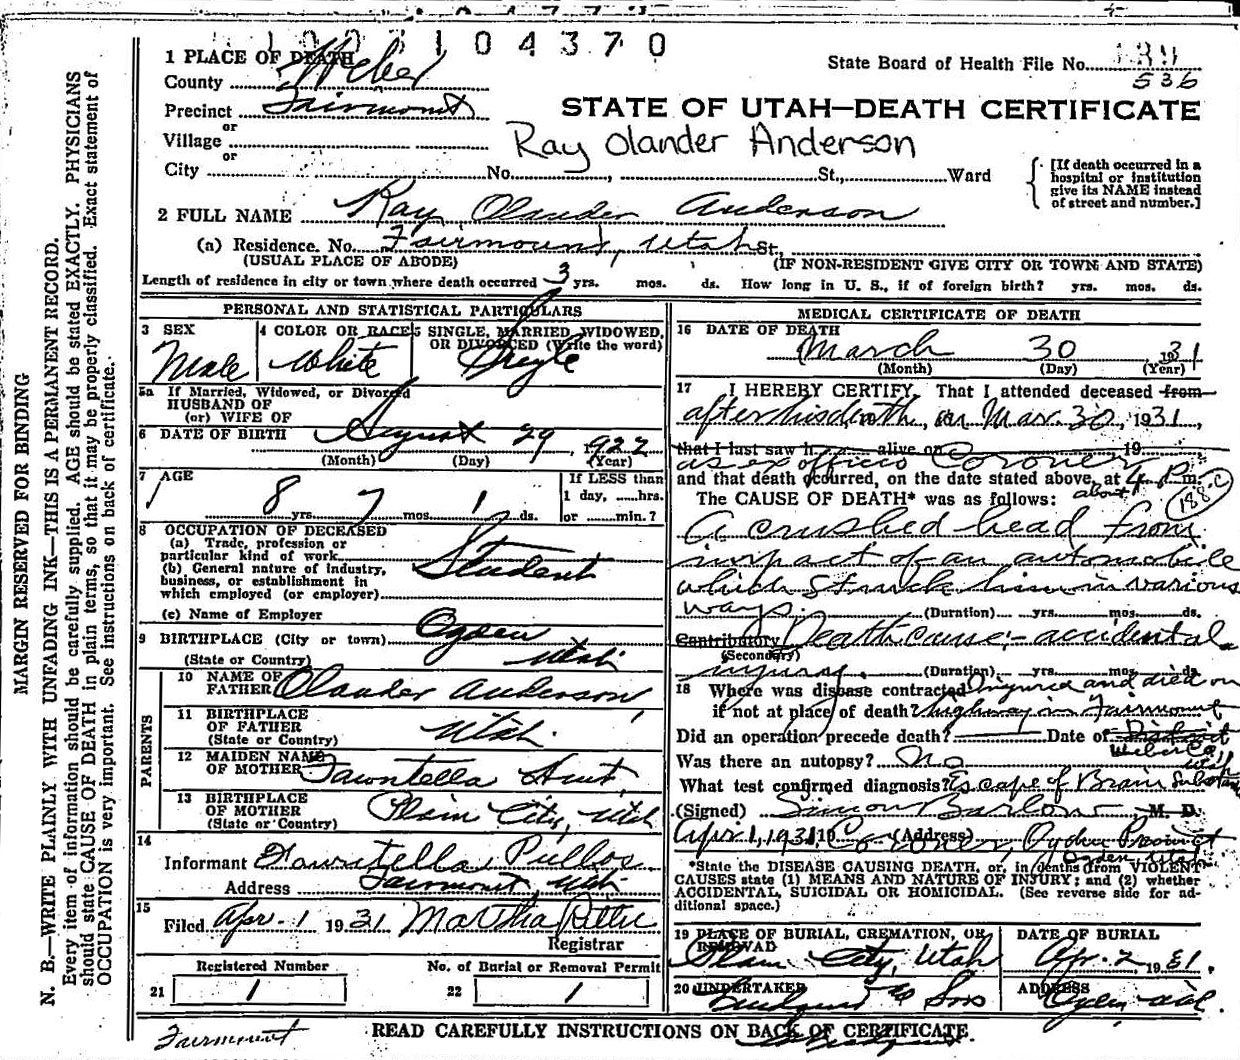 1 0 0 3 1 0 4 3 7 0
1 PLACE OF DEATH
County Weber
Precinct Fairmount
or
Village
or
City No. , St., Ward
State Board of Health File No.
536
STATE OF UTAH—DEATH CERTIFICATE
Ray Olander Anderson
[If death occurred in a
hospital or institution
give its NAME instead
of street and number.]
2 FULL NAME Ray Olander Anderson
(a) Residence. No. Fairmount, Utah St.,
(USUAL PLACE OF ABODE) (IF NON-RESIDENT GIVE CITY OR TOWN AND STATE)
Length of residence in city or town where death occurred 3 yrs. mos. ds. How long in U. S., if of foreign birth? yrs. mos. ds.
PERSONAL AND STATISTICAL PARTICULARS
3 SEX
Male
4 COLOR OR RACE
White
5 SINGLE, MARRIED, WIDOWED,
OR DIVORCED (Write the word)
Single
5a If Married, Widowed, or Divorced
HUSBAND OF
(or) WIFE OF
6 DATE OF BIRTH August 29, 1922
(Month) (Day) (Year)
7 AGE
8 yrs. 7 mos. 1 ds.
If LESS than
1 day, ......hrs.
or ........min.?
8 OCCUPATION OF DECEASED
(a) Trade, profession or
particular kind of work
(b) General nature of industry,
business, or establishment in
which employed (or employer)
Student
(c) Name of Employer
9 BIRTHPLACE (City or town) Ogden
(State or Country) Utah
PARENTS
10 NAME OF
FATHER Olander Anderson
11 BIRTHPLACE
OF FATHER
(State or Country) Utah
12 MAIDEN NAME
OF MOTHER Hunt
13 BIRTHPLACE
OF MOTHER
(State or Country) Plain City, Utah
14
Informant
Address Fairmount, Utah
15
Filed Apr. 1 1931 Martha
Registrar
Registered Number
21 1
No. of Burial or Removal Permit
22 1
MEDICAL CERTIFICATE OF DEATH
16 DATE OF DEATH
March 30 1931
(Month) (Day) (Year)
17 I HEREBY CERTIFY, That I attended deceased from
after his death, on Mar. 30, 1931,
that I last saw h alive on 19
as ex officio Coroner
and that death occurred, on the date stated above, at about 4 P. m.
188-c
The CAUSE OF DEATH* was as follows:
A crushed head from
impact of an automobile
which struck him in various
ways. (Duration) yrs. mos. ds.
Contributory Death cause:- accidental
(Secondary)
injury. (Duration) yrs. mos. ds.
18 Where was disease contracted Injured and died on
if not at place of death? highway in Fairmount
Did an operation precede death? Date of District
Weber Co.
Utah
Was there an autopsy? No
What test confirmed diagnosis? Escape of Brain Substance
(Signed) Simon Barlow, M. D.
Apr 1, 1931 19 Coroner, (Address) Ogden Precinct
Ogden Utah
*State the DISEASE CAUSING DEATH, or, in deaths from VIOLENT
CAUSES state (1) MEANS AND NATURE OF INJURY; and (2) whether
ACCIDENTAL, SUICIDAL OR HOMICIDAL. (See reverse side for ad-
ditional space.)
19 PLACE OF BURIAL, CREMATION, OR
REMOVAL
Plain City, Utah
DATE OF BURIAL
Apr. 2, 1931.
20 UNDERTAKER
Lindquist & Sons
ADDRESS
Ogden Utah
Fairmount
READ CAREFULLY INSTRUCTIONS ON BACK OF CERTIFICATE.
MARGIN RESERVED FOR BINDING
N. B.—WRITE PLAINLY WITH UNFADING INK—THIS IS A PERMANENT RECORD.
Every item of information should be carefully supplied. AGE should be stated EXACTLY. PHYSICIANS
should state CAUSE OF DEATH in plain terms, so that it may be properly classified. Exact statement of
OCCUPATION is very important. See instructions on back of certificate.